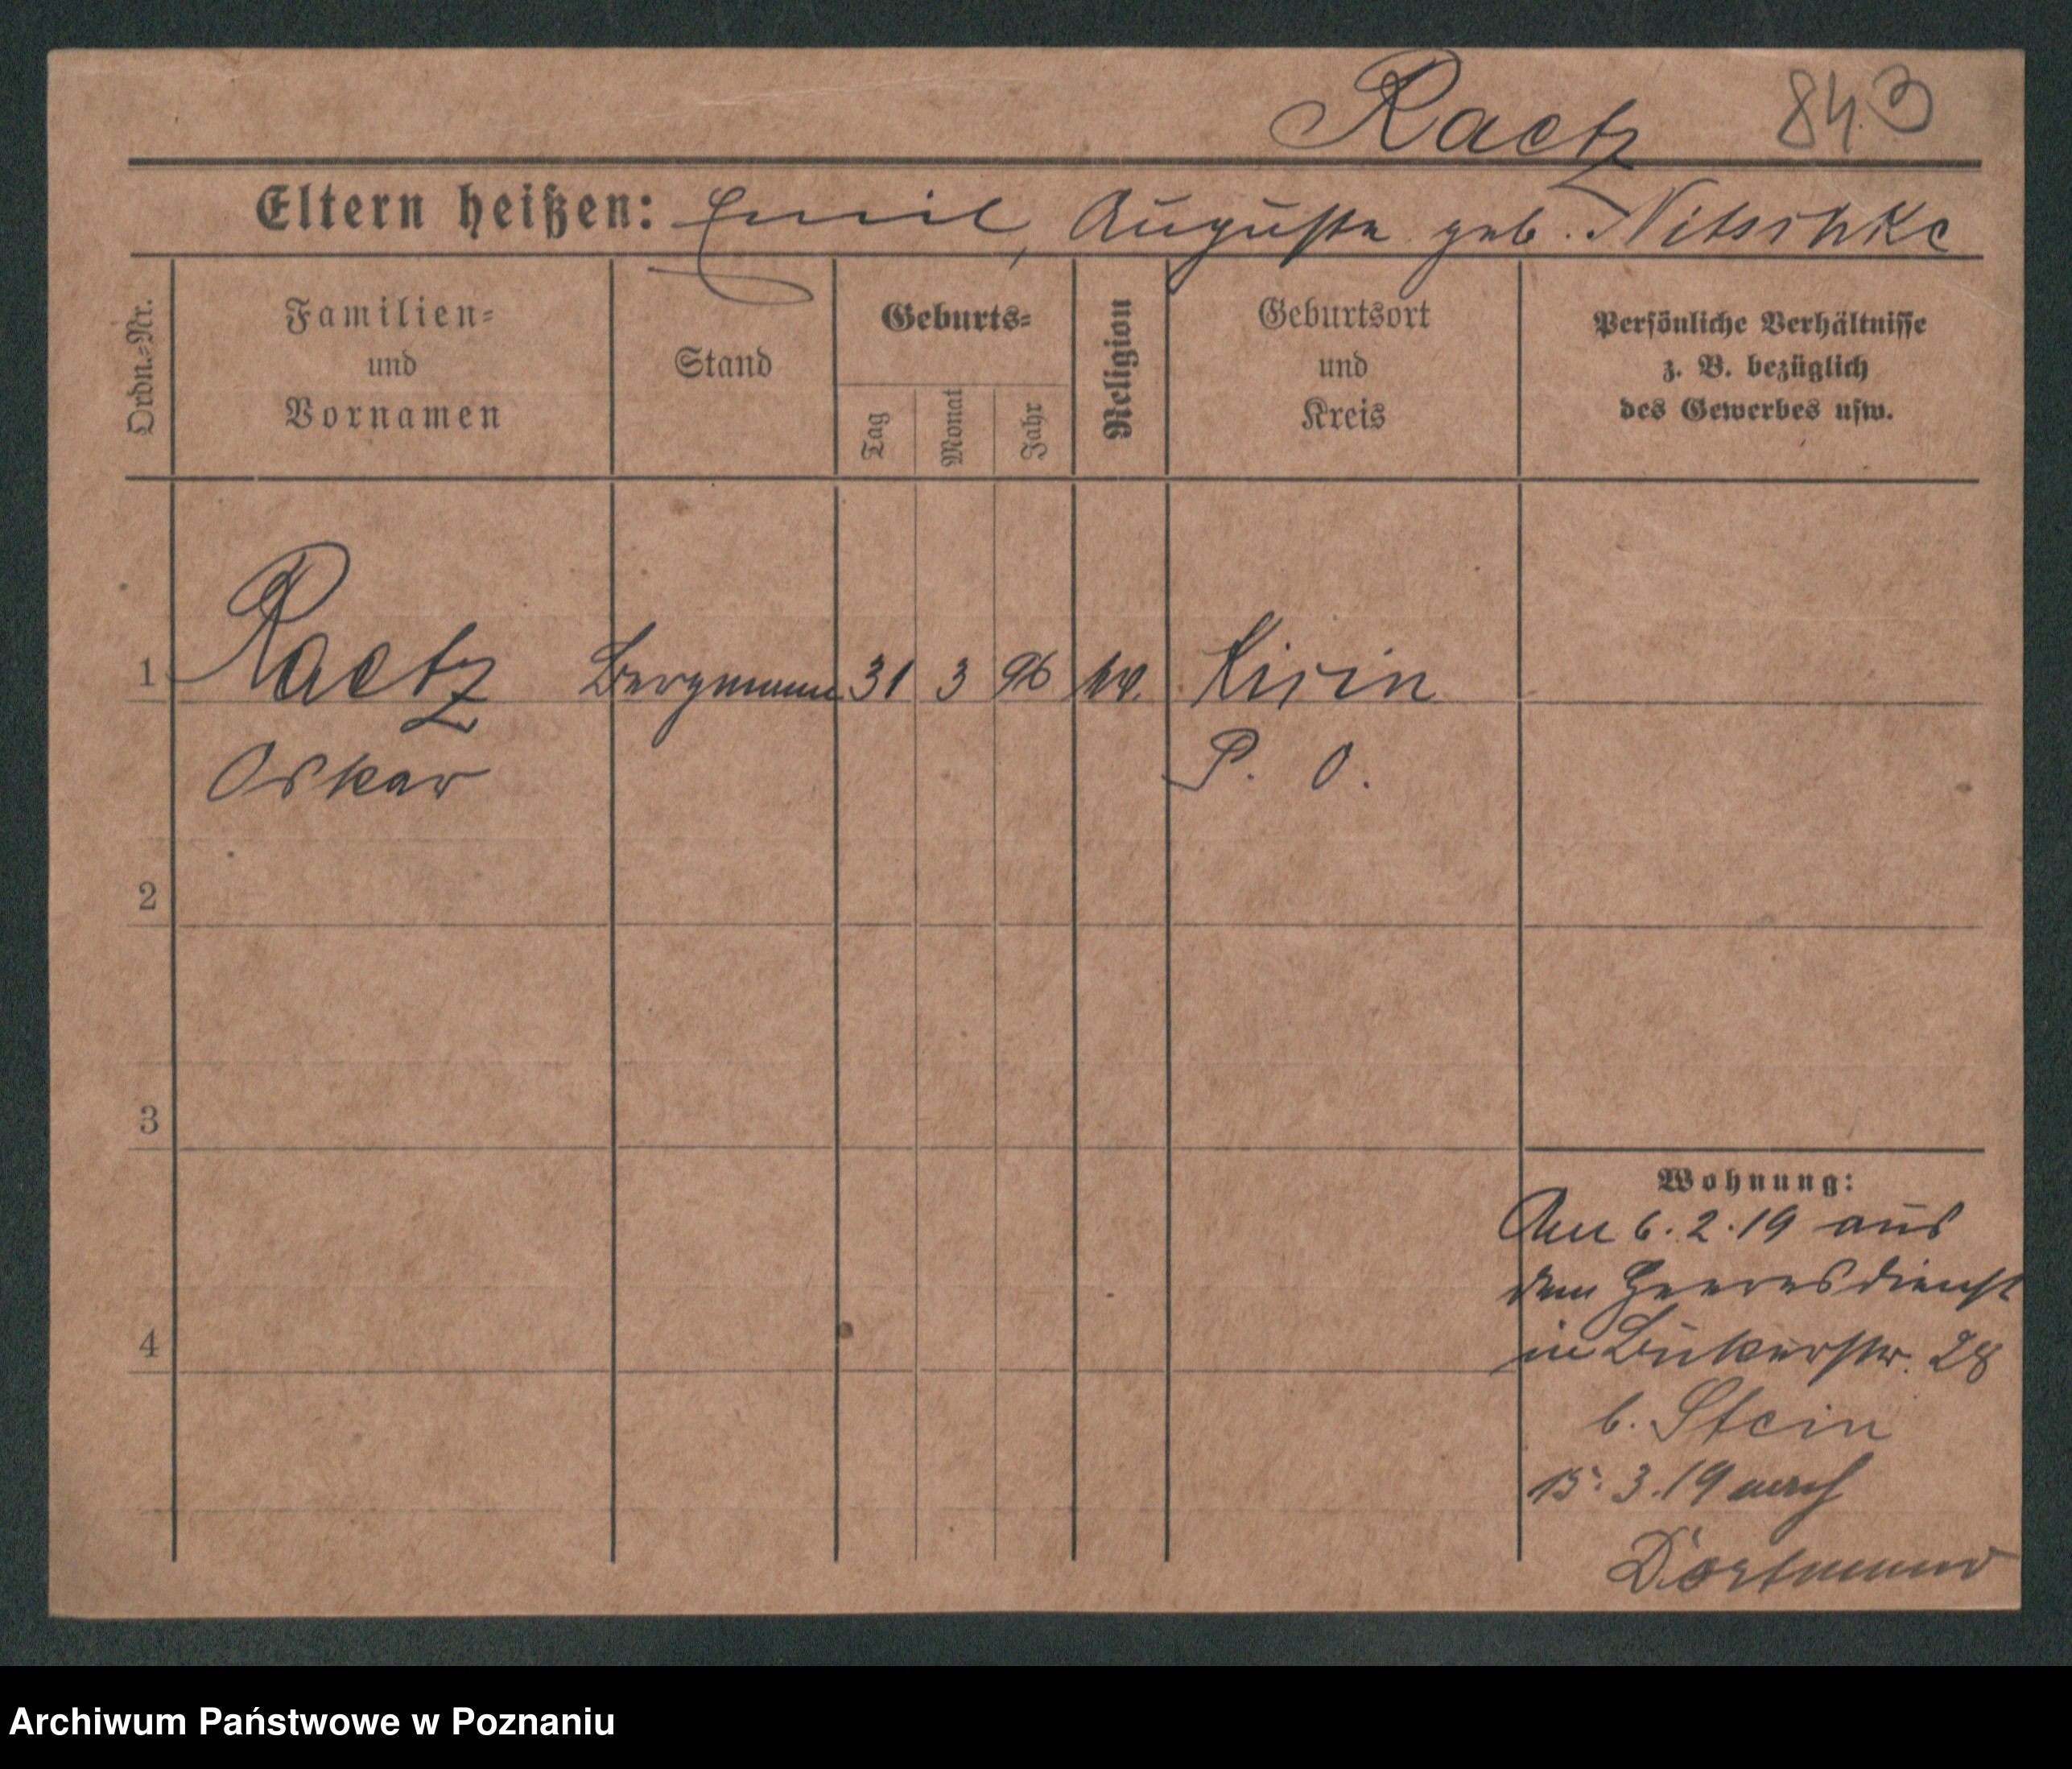 Raetz 843
Eltern heißen: Emil, Auguste geb. Nitschke
Ordn.-Nr.
Familien-
und
Vornamen
Stand
Geburts-
Tag
Monat
Jahr
Religion
Geburtsort
und
Kreis
Persönliche Verhältnisse
z. B. bezüglich
des Gewerbes usw.
1 Raetz Bergmann 31 3 96 ev. Kirin
Oskar P. O.
2
3
4
Wohnung:
Am 6.2.19 aus
dem Heeresdienst
in 28
b. Stein
15.3.19 nach
Dortmund
Archiwum Państwowe w Poznaniu